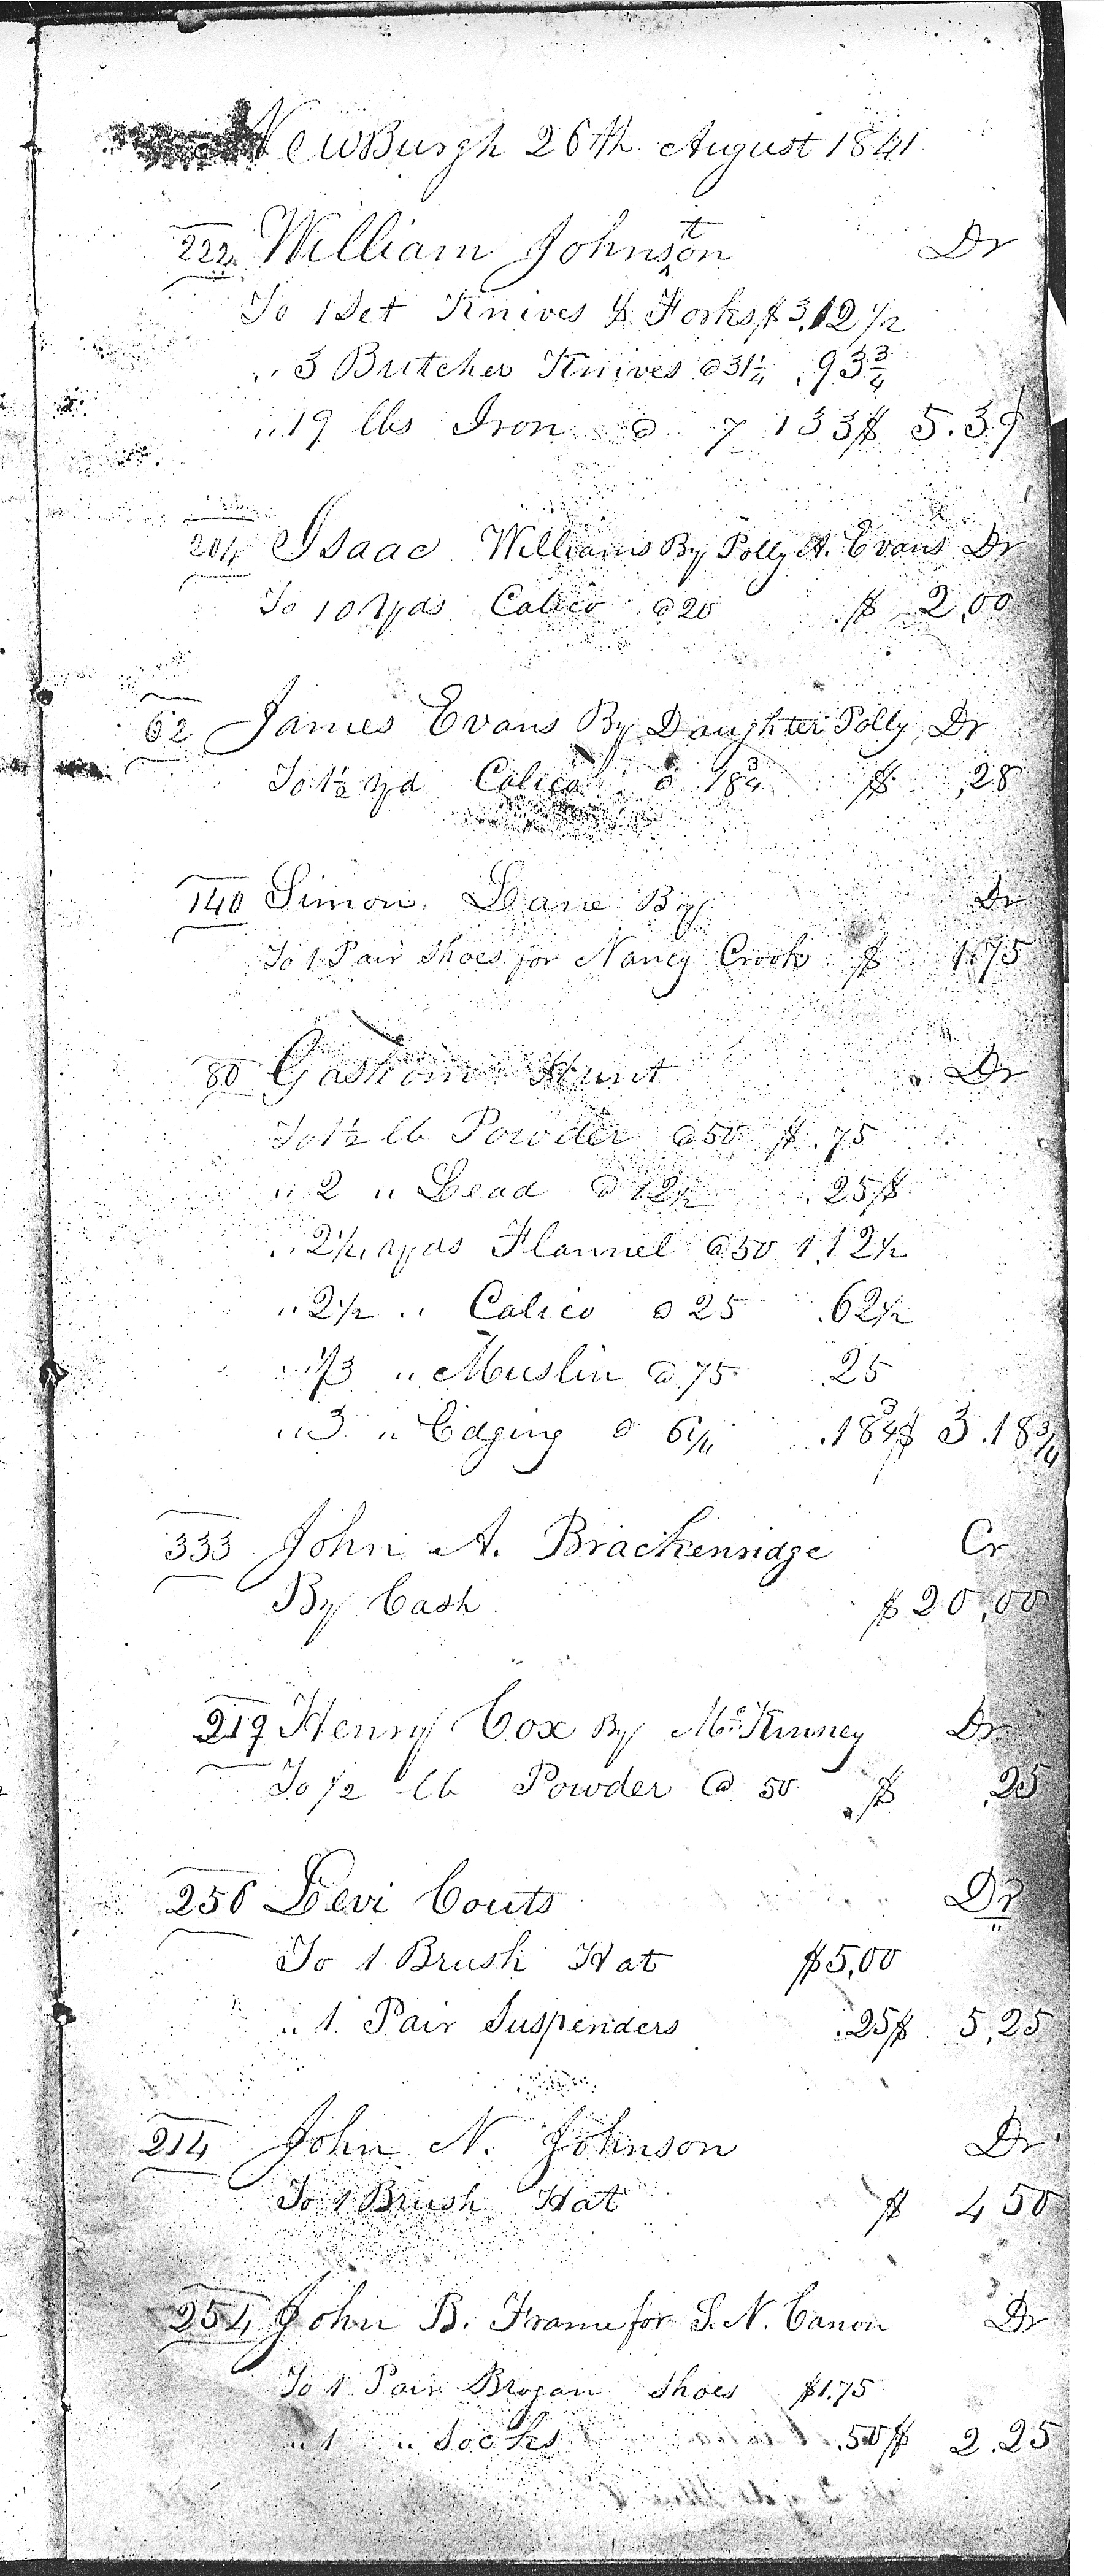 NewBurgh 26th August 1841
222 William Johnston Dr
To 1 Set Knives & Forks $3.12 1/2
" 3 Butcher Knives @ 31 1/4 .93 3/4
" 19 lbs Iron @ 7 1 33 $ 5.39
204 Isaac Williams By Polly A. Evans Dr
To 10 Yds Calico @ 20 $ 2,00
62 James Evans By Daughter Polly Dr
To 1 1/2 Yd Calico @ 18 3/4 $ ,28
140 Simon Lane By Dr
To 1 Pair Shoes for Nancy Crook $ 1.75
80 Hunt Dr
To 1 1/2 lb Powder @ 50 $ .75
" 2 " Lead @ 12 1/2 .25 $
" 2 1/4 Yds Flannel @ 50 1.12 1/2
" 2 1/2 " Calico @ 25 .62 1/2
" 1/3 " Muslin @ 75 .25
" 3 " Edging @ 6 1/4 .18 3/4 $ 3.18 3/4
333 John A. Brackenridge Cr
By Cash $ 20,00
219 Henry Cox By McKinney Dr
To 1/2 lb Powder @ 50 $ ,25
256 Levi Couts Dr
To 1 Brush Hat $5,00
" 1 Pair Suspenders .25 $ 5,25
214 John N. Johnson Dr
To 1 Brush Hat $ 4 50
254 John B. Frame for S. N. Canon Dr
To 1 Pair Brogan Shoes $1.75
" 1 " Socks .50 $ 2.25